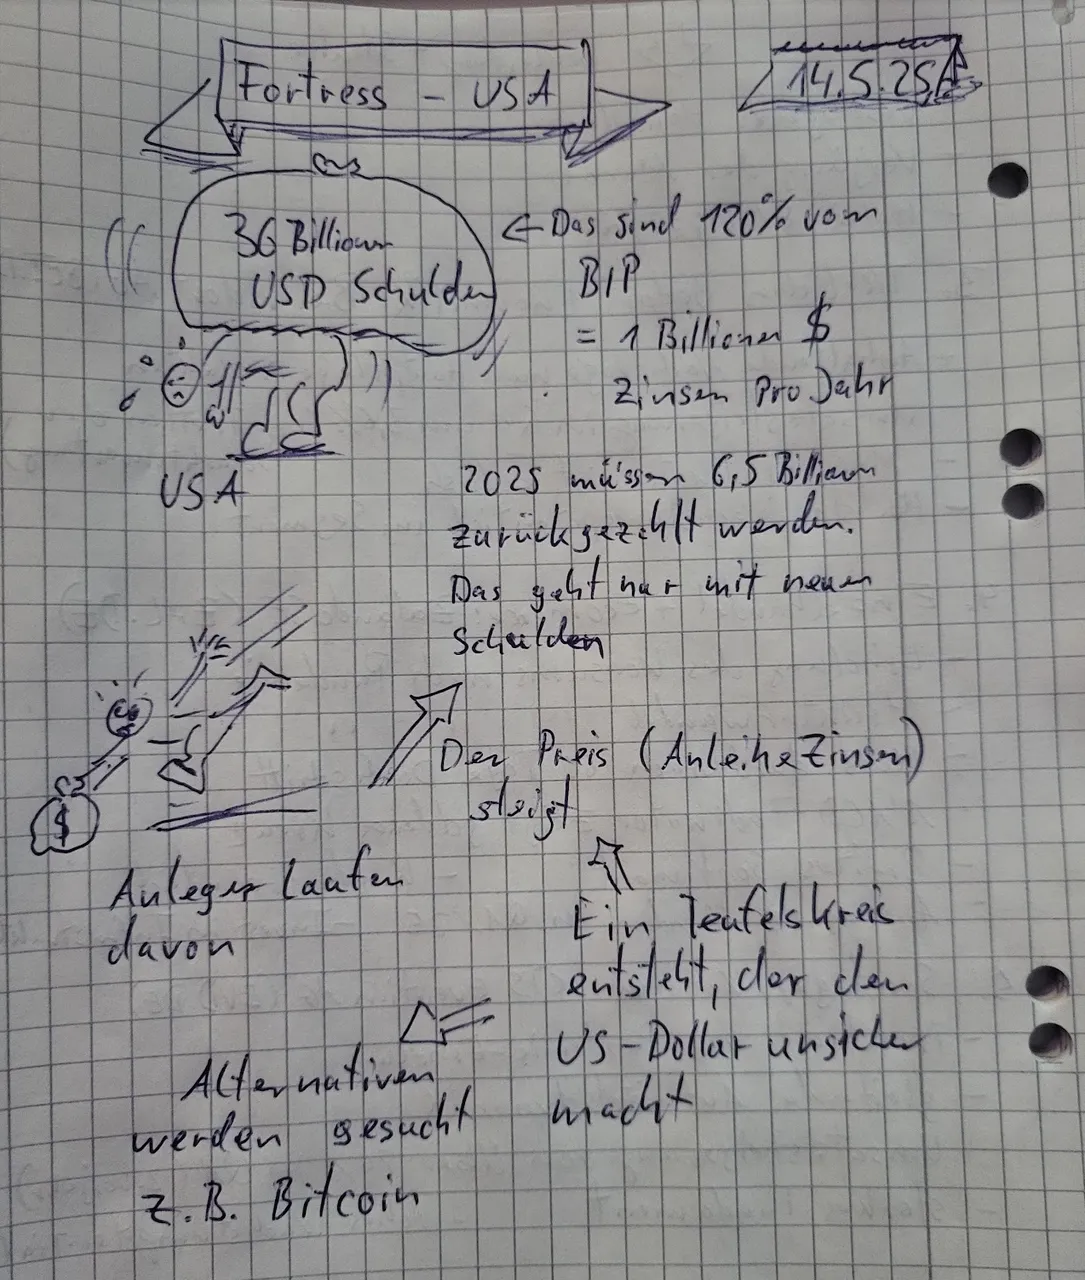 Fortress - USA
14.5.25
36 Billionen
USD Schulden
← Das sind 120% vom
BIP
= 1 Billionen $
Zinsen Pro Jahr
USA
2025 müssen 6,5 Billionen
zurückgezahlt werden.
Das geht nur mit neuen
Schulden
Der Preis (AnleiheZinsen)
steigt
$
Anleger laufen
davon
Ein Teufelskreis
entsteht, der den
US-Dollar unsicher
macht
Alternativen
werden gesucht
z.B. Bitcoin